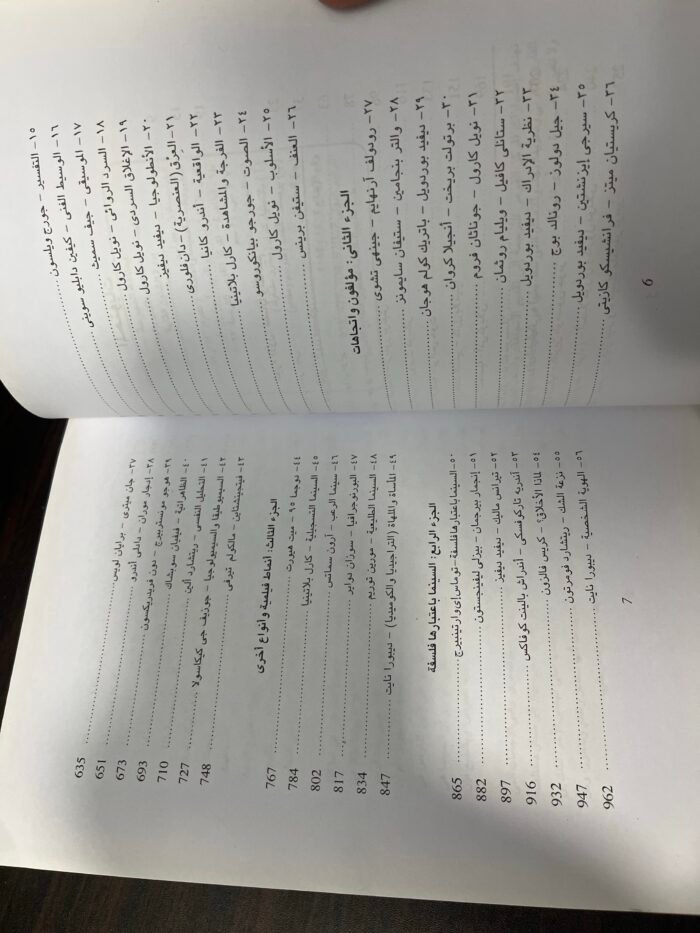 ١٥- التفسير - جورج ويلسون
١٦- الوسيط الفنى - كيفين دابليو سوينى
١٧- الموسيقى - جيف سميث
١٨- السرد الروائى - نويل كارول
١٩- الإغلاق السردى - نويل كارول
٢٠- الأنطولوجيا - ديفيد ديفيز
٢١- العِرْق (العنصرية) - دان فلورى
٢٢- الواقعية - أندرو كانيا
٢٣- الفرجة والمشاهدة - كارل بلاتينيا
٢٤- الصوت - جورجو بيانكوروسو
٢٥- الأسلوب - نويل كارول
٢٦- العنف - ستيفن برينس
الجزء الثانى: مؤلفون واتجاهات
٢٧- رودولف آرنهايم - جينهى تشوى
٢٨- والتر بنجامين - ستيفان سايمونز
٢٩- ديفيد بوردويل - باتريك كولم هوجان
٣٠- برتولت بريخت - أنجيلا كروان
٣١- نويل كارول - جوناثان فروم
٣٢- ستانلى كافيل - ويليام روثمان
٣٣- نظرية الإدراك - ديفيد بوردويل
٣٤- جيل دولوز - رونالد بوج
٣٥- سيرجى إيزنشتين - ديفيد بوردويل
٣٦- كريستيان ميتز - فرانشيسكو كازيتى
6
٣٧- جان ميترى - برايان لويس 635
٣٨- إدجار موران - دادلى أندرو 651
٣٩- هوجو مونستربيرج - دون فريدريكسون 673
٤٠- الظاهراتية - فيفيان سوبشاك 693
٤١- التحليل النفسى - ريتشارد ألين 710
٤٢- السيميوطيقا والسيميولوجيا - جوزيف جى كيكاسولا 727
٤٣- فيتجينشتاين - مالكولم تيرفى 748
الجزء الثالث: أنماط فيلمية وأنواع أخرى
٤٤- دوجما ٩٥ - ميت هيورت 767
٤٥- السينما التسجيلية - كارل بلاتينيا 784
٤٦- سينما الرعب - آرون سماتس 802
٤٧- البورنوجرافيا - سوزان دواير 817
٤٨- السينما الطليعية - مورين توريم 834
٤٩- المأساة والملهاة (التراجيديا والكوميديا) - ديبورا نايت 847
الجزء الرابع: السينما باعتبارها فلسفة
٥٠- السينما باعتبارها فلسفة - توماس إى وارتينبيرج 865
٥١- إنجمار بيرجمان - بيزلى ليفينجستون 882
٥٢- تيرانس ماليك - ديفيد ديفيز 897
٥٣- أندريه تاركوفسكى - أندراش بالينت كوفاكس 916
٥٤- لماذا الأخلاق؟ - كريس فالزون 932
٥٥- نزعة الشك - ريتشارد فومرتون 947
٥٦- الهوية الشخصية - ديبورا نايت 962
7